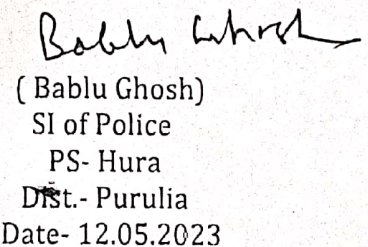 Bablu Ghosh
( Bablu Ghosh)
SI of Police
PS- Hura
Dist.- Purulia
Date- 12.05.2023